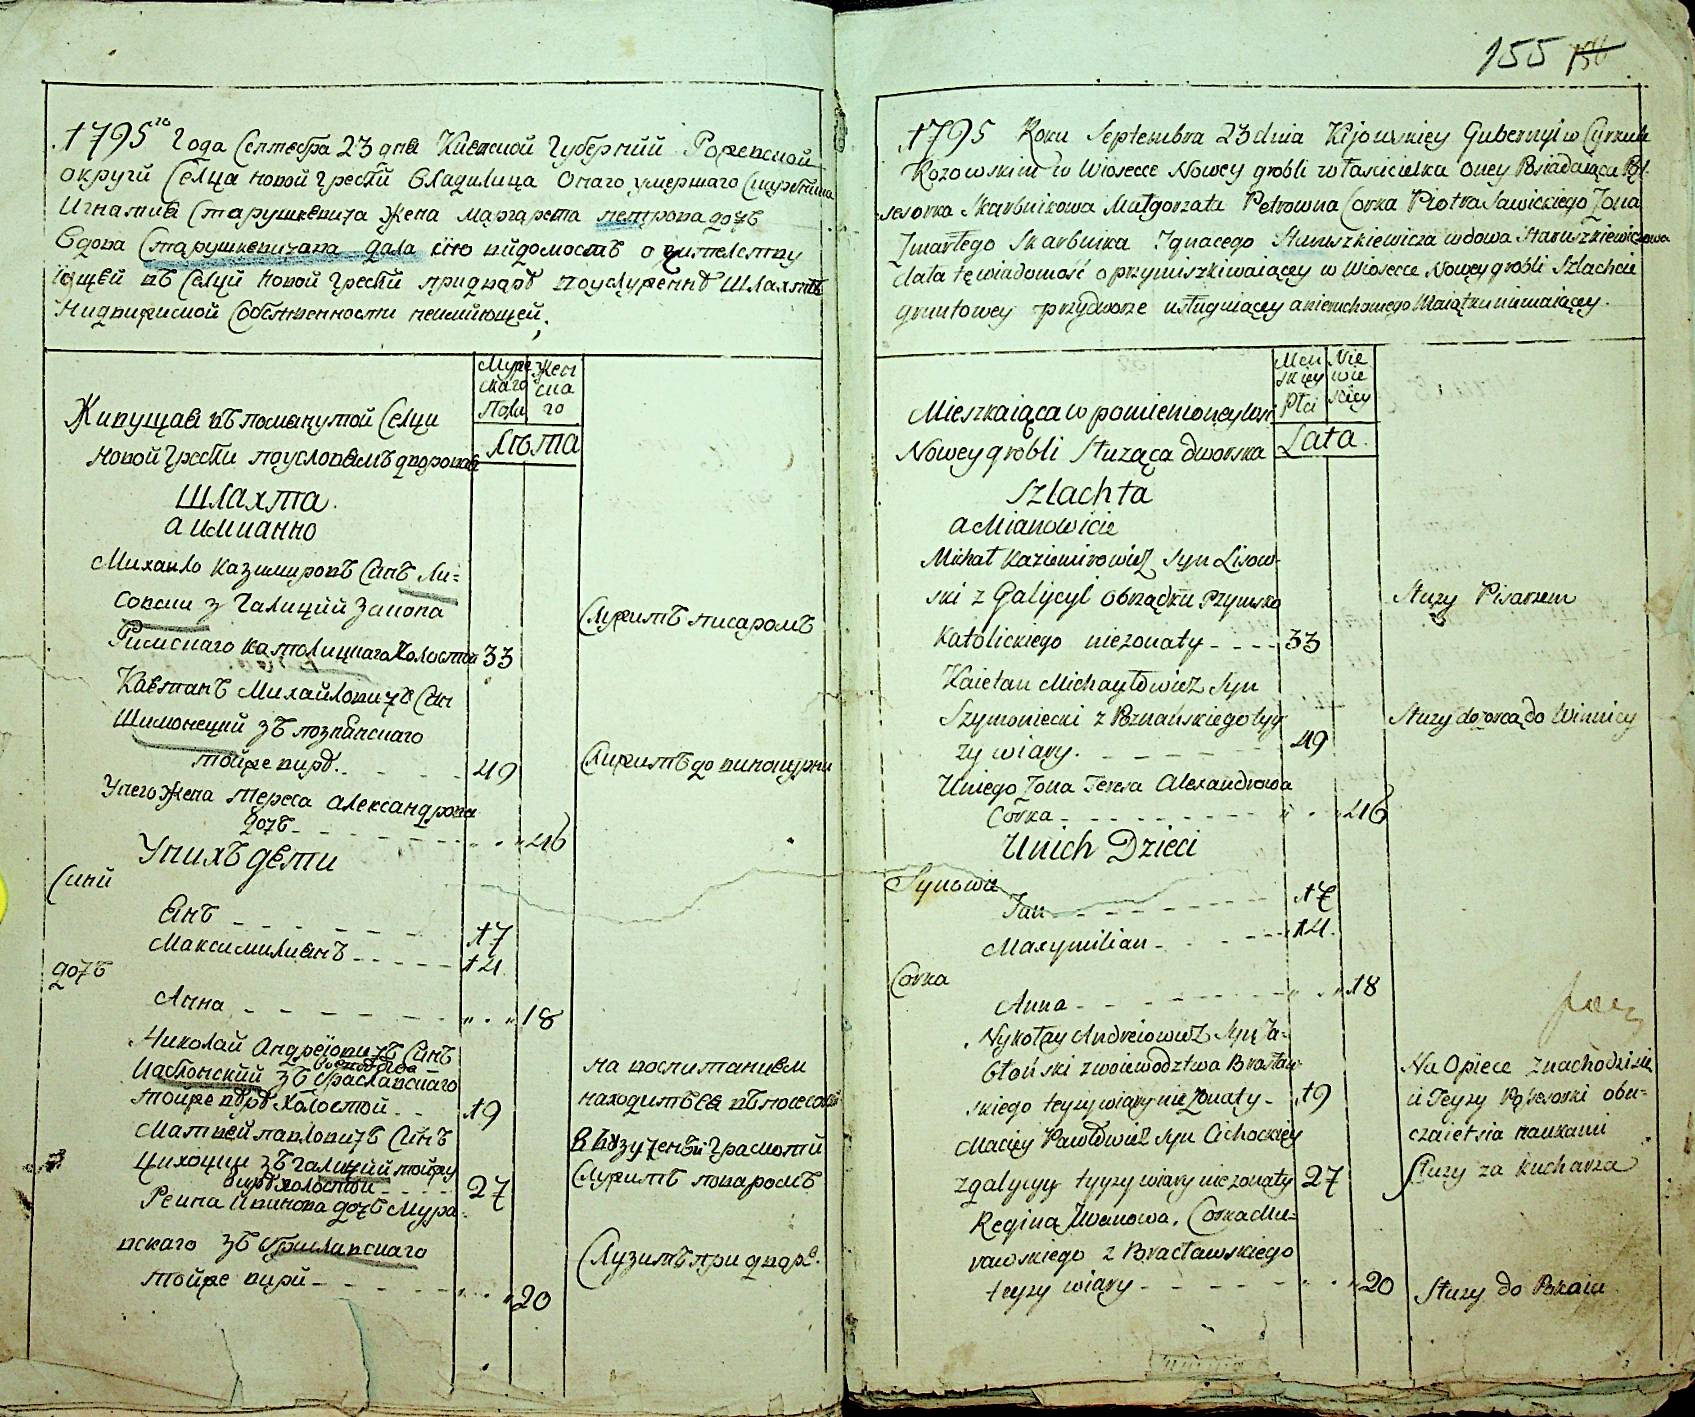 1795го Года Септебра 23 дня Киевской Губерний Рожевской
округи Селца новой Гребли Владилица Онаго умершаго
Игнатия Старушкевича Жена Маргарета петрова дочь
Вдова Старушкевичова дала сїю видомость о
ющей въ Селци Новой Гребли придворѣ поуслуженнѣ Шляхтѣ
Нидвижисмой Собственности неимиющей.
Муже
скаго
Полу
Жен
ска
го
Лѣта
Живущая въ помянутой Селци
Новой Гребли поусловiемъ дворовая
Шляхта
а имианно
Михайло Казимировъ Синъ Ли=
совски з Галиций Закона
Римскаго Католицкаго Холостой 33
Служитъ писаромъ
Каетанъ Михайловичъ Син
Шимонецкий зъ познанскаго
тойже вирѣ. 49
Служитъ до винокурни
Унего Жена Тереса Александрова
дочь 46
Унихъ дети
Синй
Янъ 17
Максимилиянъ 14
дочъ
Анна 18
Николай Андрейовичъ Синъ
Яблонский зъ Браславскаго
тойже вѣрѣ Холостой 19
на воспитанием
находится въ посесорки
въ изученьи Грасмотй
Матвей павловичъ Синъ
Цихоцки зъ Галиций тойжу
вирѣ холостой 27
Служитъ поваромъ
Реина Иванова дочъ Мура=
вскаго зъ Браславскаго
тойже вири 20
Слузитъ при дворѣ.
155 156
1795 Roku Septembra 23 dnia Kijowskiey Gubernyi w Cyrkule
Rozowskim w Wiosecce Nowey grobli włascicielka Oney Posiadaiąca Po[s]
sesorka Skarbnikowa Małgorzata Petrowna Corka Piotra Sawickiego Zona
Zmarłego Skarbnika Ignacego Staruszkiewicza wdowa Staruszkiewiczowa
data tę wiadomość o przymiszkiwaiącey w Wiosecce Nowey grobli Szlachcie
gruntowey przydworze usługuiącey a nieruchomego Maiątku nimaiącey.
Męs
skiey
Płci
Nie
wie
sciey
Lata.
Mieszkaiąca w pomienioney Wsi
Nowey grobli Służąca dworska
Szlachta
a Mianowicie
Michał Kazimirowicz Syn Lisow-
ski z Galycyi obrządku Rzymsko
Katolickiego niezonaty 33
Służy Pisarzem
Kaietan Michayłowicz Syn
Szymoniecki z Poznańskiego tyy
zy wiary. 49
Służy dozorcą do Winnicy
Uniego Zona Teresa Alexandrowa
Corka 46
Unich Dzieci
Synowie
Jan 17
Maxymilian 14.
Corka
Anna 18
Nykołay Andreiowicz Syn Ja-
błoński z woiewodztwa Bracław-
skiego teyzy wiary nie Zonaty 19
Na Opiece Znachodzi się
u Teyzy Possesorki obu-
czaietsia naukami
Maciey Pawłowicz Syn Cichockiey
z galycyy tyyzy wiary nie zonaty 27
Służy za kucharza
Regina Iwanowa, Corka Mu=
rawskiego z Bracławskiego
teyzy wiary 20
Służy do Pokoiu